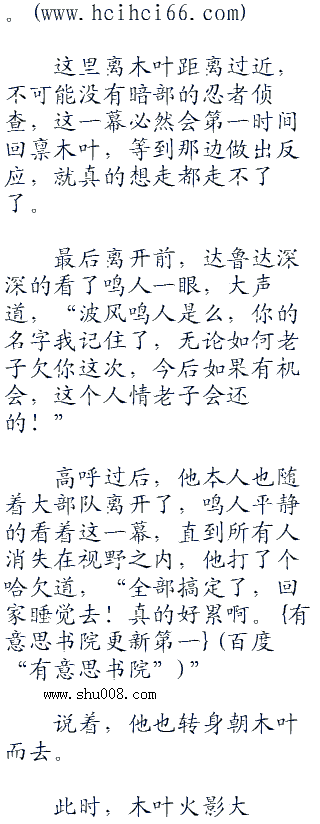 。(www.hcihci66.com)
这里离木叶距离过近，
不可能没有暗部的忍者侦
查，这一幕必然会第一时间
回禀木叶，等到那边做出反
应，就真的想走都走不了
了。
最后离开前，达鲁达深
深的看了鸣人一眼，大声
道，“波风鸣人是么，你的
名字我记住了，无论如何老
子欠你这次，今后如果有机
会，这个人情老子会还
的！”
高呼过后，他本人也随
着大部队离开了，鸣人平静
的看着这一幕，直到所有人
消失在视野之内，他打了个
哈欠道，“全部搞定了，回
家睡觉去！真的好累啊。{有
意思书院更新第一}(百度
“有意思书院”)”
www.shu008.com
说着，他也转身朝木叶
而去。
此时，木叶火影大